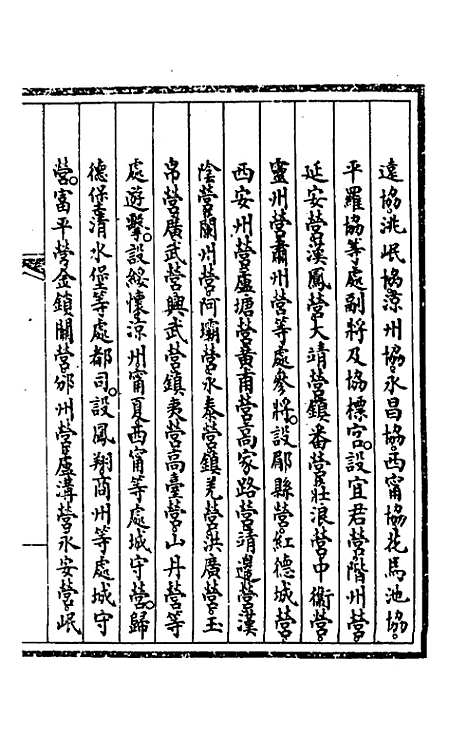 遠協。洮岷協。涼州協。永昌協。西甯協。花馬池協。
平羅協等處副將及協標官。設宜君營。階州營。
延安營。漢鳳營。大靖營。鎮番營。莊浪營。中衞營。
靈州營。肅州營等處參將。設郿縣營。紅德城營。
西安州營。蘆塘營。黃甫營。高家路營。靖邊營。漢
陰營。蘭州營。阿壩營。永泰營。鎮羌營。洪廣營。玉
帛營。廣武營。興武營。鎮夷營。高臺營。山丹營等
處遊擊。設綏懷涼州甯夏西甯等處城守營。歸
德堡。清水堡等處都司。設鳳翔商州等處城守
營。富平營。金鎖關營。邠州營。盧溝營。永安營。岷